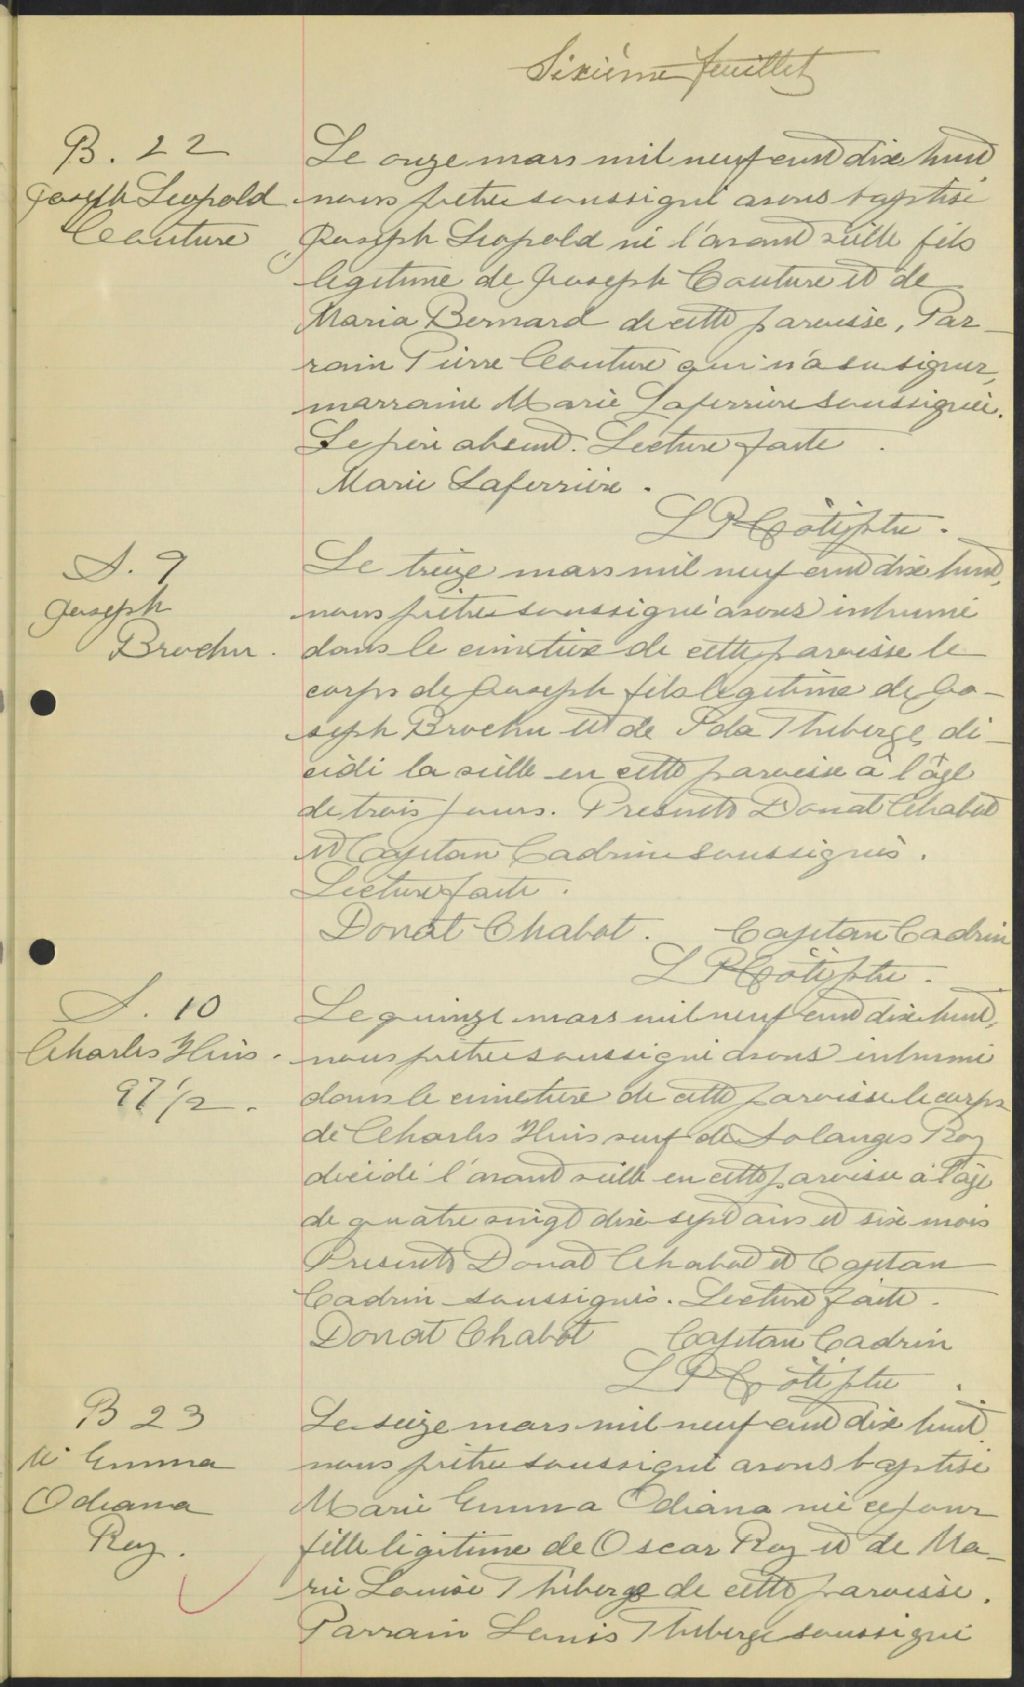 Sixième feuillet
B. 22
Joseph Leopold
Couture
Le onze mars mil neuf cent dix huit
nous prêtre soussigné avons baptisé
Joseph Leopold né l'avant veille fils
legitime de Joseph Couture et de
Maria Bernard de cette paroisse, Par-
rain Pierre Couture qui n'a su signer,
marraine Marie Laferrière soussignée.
Le père absent. Lecture faite.
Marie Laferrière.
L P Côté ptre.
S. 9
Joseph
Brochu.
Le treize mars mil neuf cent dix huit,
nous prêtre soussigné avons inhumé
dans le cimetière de cette paroisse le
corps de Joseph fils legitime de Jo-
seph Brochu et de Theberge, dé-
cédé la veille en cette paroisse à l'âge
de trois jours. Presents Donat Chabot
et Capitan Cadrin soussignés.
Lecture faite.
Donat Chabot. Capitan Cadrin
L P Côté ptre.
S. 10
Charles Huis.
97 1/2.
Le quinze mars mil neuf cent dix huit,
nous prêtre soussigné avons inhumé
dans le cimetière de cette paroisse le corps
de Charles Huis veuf de Solanges Roy
décédé l'avant veille en cette paroisse à l'âge
de quatre vingt dix sept ans et six mois
Presents Donat Chabot et Capitan
Cadrin soussignés. Lecture faite.
Donat Chabot Capitan Cadrin
L P Côté ptre.
B 23
M. Emma
Odiana
Roy.
Le seize mars mil neuf cent dix huit
nous prêtre soussigné avons baptisé
Marie Emma Odiana née ce jour
fille légitime de Oscar Roy et de Ma-
rie Louise Théberge de cette paroisse.
Parrain Louis Theberge soussigné